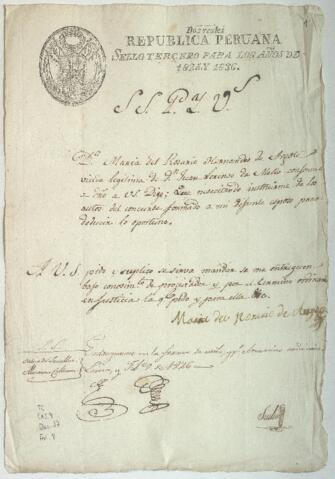 Dos reales
REPUBLICA PERUANA
SELLO TERCERO PARA LOS AÑOS DE
1825 Y 1826.
S.S.
D.ª Maria del Rosario Hernandes de Argote
viuda legitima de D.n Juan de Mata conforme
a dro a VS. Dise: Que necesitando instruirme de los
autos del concurso formado a mi difunto esposo para
deducir lo oportuno.
A V.S. pido y suplico se sirva mandar se me entreguen
bajo conosim.to de procurador y por el termino ordinario
en Justicia la q.e pido y para ello &c.
Maria del Rosario de
Entreguense en la forma de estilo, p.r el termino ordinario
Lima, y 1826